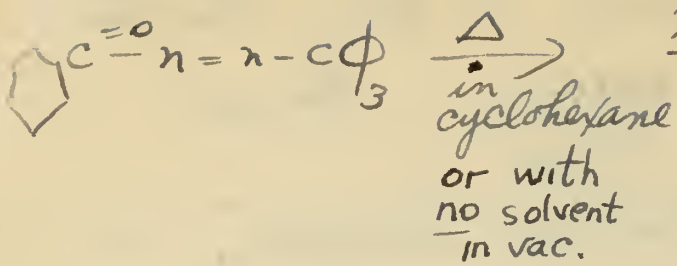 C=O - n = n - Cϕ3 Δ
in
cyclohexane
or with
no solvent
in vac.